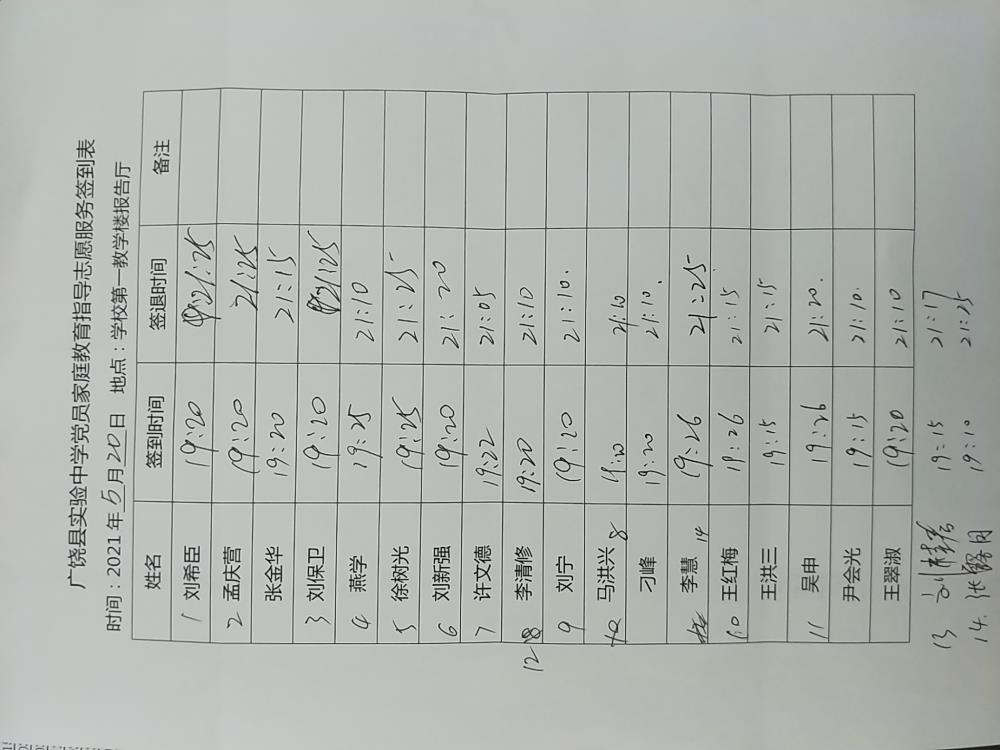 广饶县实验中学党员家庭教育指导志愿服务签到表
时间：2021年5月20日 地点：学校第一教学楼报告厅
姓名 签到时间 签退时间 备注
1 刘希臣 19:20 21:25
2 孟庆营 19:20 21:25
张金华 19:20 21:15
3 刘保卫 19:20 21:25
4 燕学 19:25 21:10
5 徐树光 19:25 21:25
6 刘新强 19:20 21:20
7 许文德 19:22 21:05
12 8 李清修 19:20 21:10
9 刘宁 19:20 21:10.
马洪兴 8 19:20 21:10
刁峰 19:20 21:10.
李慧 14 19:26 21:25
10 王红梅 19:26 21:15
王洪三 19:15 21:15
11 吴申 19:26 21:20.
尹会光 19:15 21:10.
王翠淑 19:20 21:10
13 19:15 21:17
14. 张 月 19:10 21:25